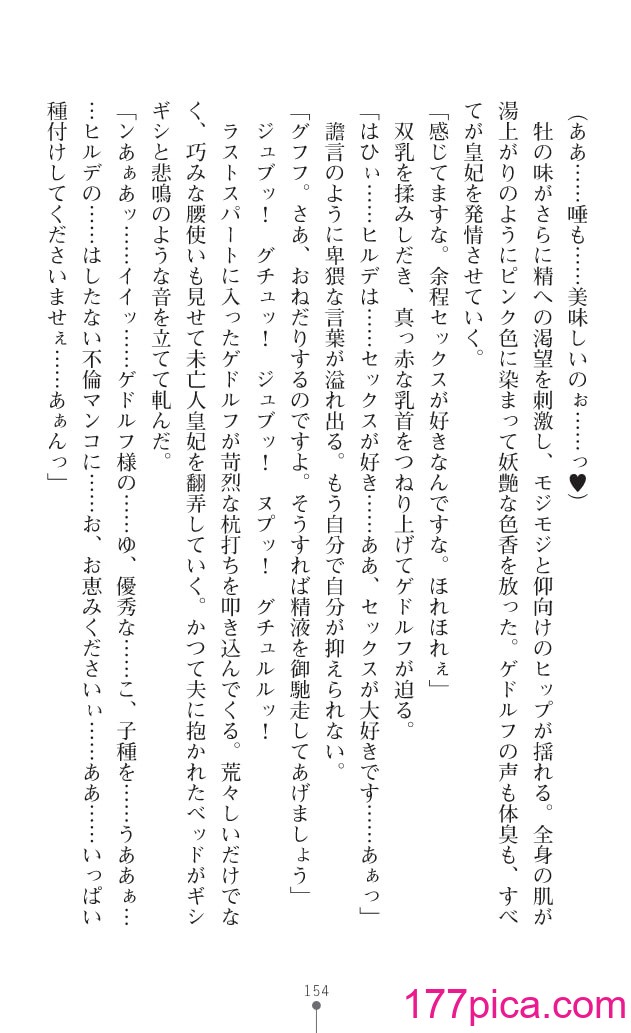 (ああ……唾も……美味しいのぉ……っ♥)
　牡の味がさらに精への渇望を刺激し、モジモジと仰向けのヒップが揺れる。全身の肌が
湯上がりのようにピンク色に染まって妖艶な色香を放った。ゲドルフの声も体臭も、すべ
てが皇妃を発情させていく。
「感じてますな。余程セックスが好きなんですな。ほれほれぇ」
　双乳を揉みしだき、真っ赤な乳首をつねり上げてゲドルフが迫る。
「はひぃ……ヒルデは……セックスが好き……ああ、セックスが大好きです……あぁっ」
　譫言のように卑猥な言葉が溢れ出る。もう自分で自分が抑えられない。
「グフフ。さあ、おねだりするのですよ。そうすれば精液を御馳走してあげましょう」
　ジュブッ！　グチュッ！　ジュブッ！　ヌプッ！　グチュルルッ！
　ラストスパートに入ったゲドルフが苛烈な杭打ちを叩き込んでくる。荒々しいだけでな
く、巧みな腰使いも見せて未亡人皇妃を翻弄していく。かつて夫に抱かれたベッドがギシ
ギシと悲鳴のような音を立てて軋んだ。
「ンあぁあッ……イイッ……ゲドルフ様の……ゆ、優秀な……こ、子種を……うああぁ…
…ヒルデの……はしたない不倫マンコに……お、お恵みくださいぃ……ああ……いっぱい
種付けしてくださいませぇ……あぁんっ」
154
177pica.com